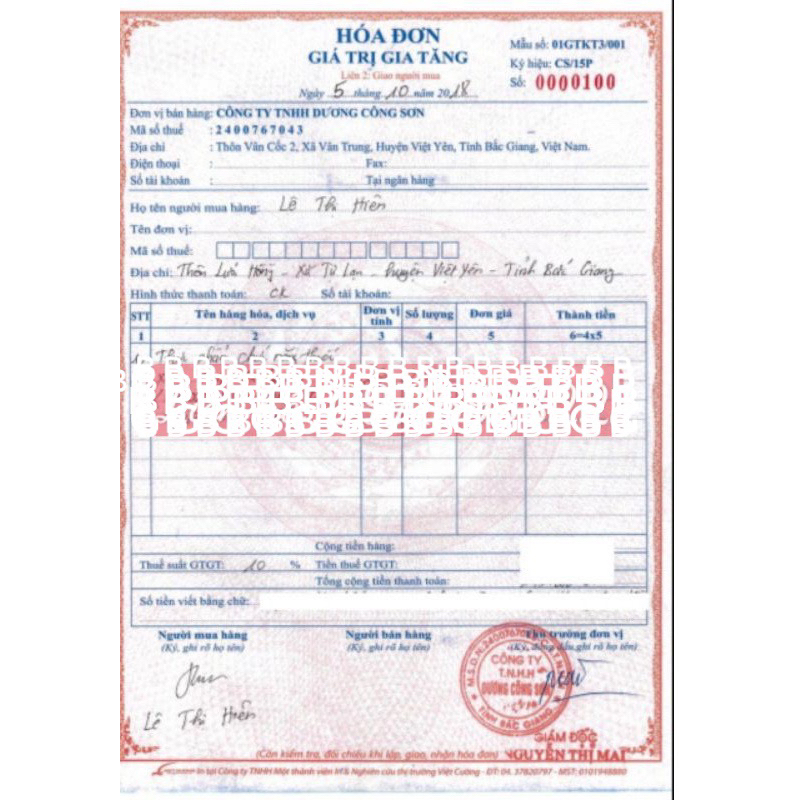 HÓA ĐƠN
GIÁ TRỊ GIA TĂNG
Liên 2: Giao người mua
Ngày 5 tháng 10 năm 2018
Mẫu số: 01GTKT3/001
Ký hiệu: CS/15P
Số: 0000100
Đơn vị bán hàng: CÔNG TY TNHH DƯƠNG CÔNG SƠN
Mã số thuế : 2400767043
Địa chỉ : Thôn Vân Cốc 2, Xã Vân Trung, Huyện Việt Yên, Tỉnh Bắc Giang, Việt Nam.
Điện thoại : Fax:
Số tài khoản : Tại ngân hàng
Họ tên người mua hàng: Lê Thị Hiên
Tên đơn vị:
Mã số thuế:
Địa chỉ: Thôn - Xã Tự Lạn - Huyện Việt Yên - Tỉnh Bắc Giang
Hình thức thanh toán: CK Số tài khoản:
STT Tên hàng hóa, dịch vụ Đơn vị tính Số lượng Đơn giá Thành tiền
1 2 3 4 5 6=4x5
1
Cộng tiền hàng:
Thuế suất GTGT: 10 % Tiền thuế GTGT:
Tổng cộng tiền thanh toán:
Số tiền viết bằng chữ:
Người mua hàng Người bán hàng Thủ trưởng đơn vị
(Ký, ghi rõ họ tên) (Ký, ghi rõ họ tên) (Ký, đóng dấu, ghi rõ họ tên)
CÔNG TY
T.N.H.H
DƯƠNG CÔNG SƠN
TỈNH BẮC GIANG
Lê Thị Hiên
GIÁM ĐỐC
NGUYỄN THỊ MAI
(Cần kiểm tra, đối chiếu khi lập, giao, nhận hóa đơn)
In tại Công ty TNHH Một thành viên in & Nghiên cứu thị trường Việt Cường - ĐT: 04. 37820797 - MST: 0101948880